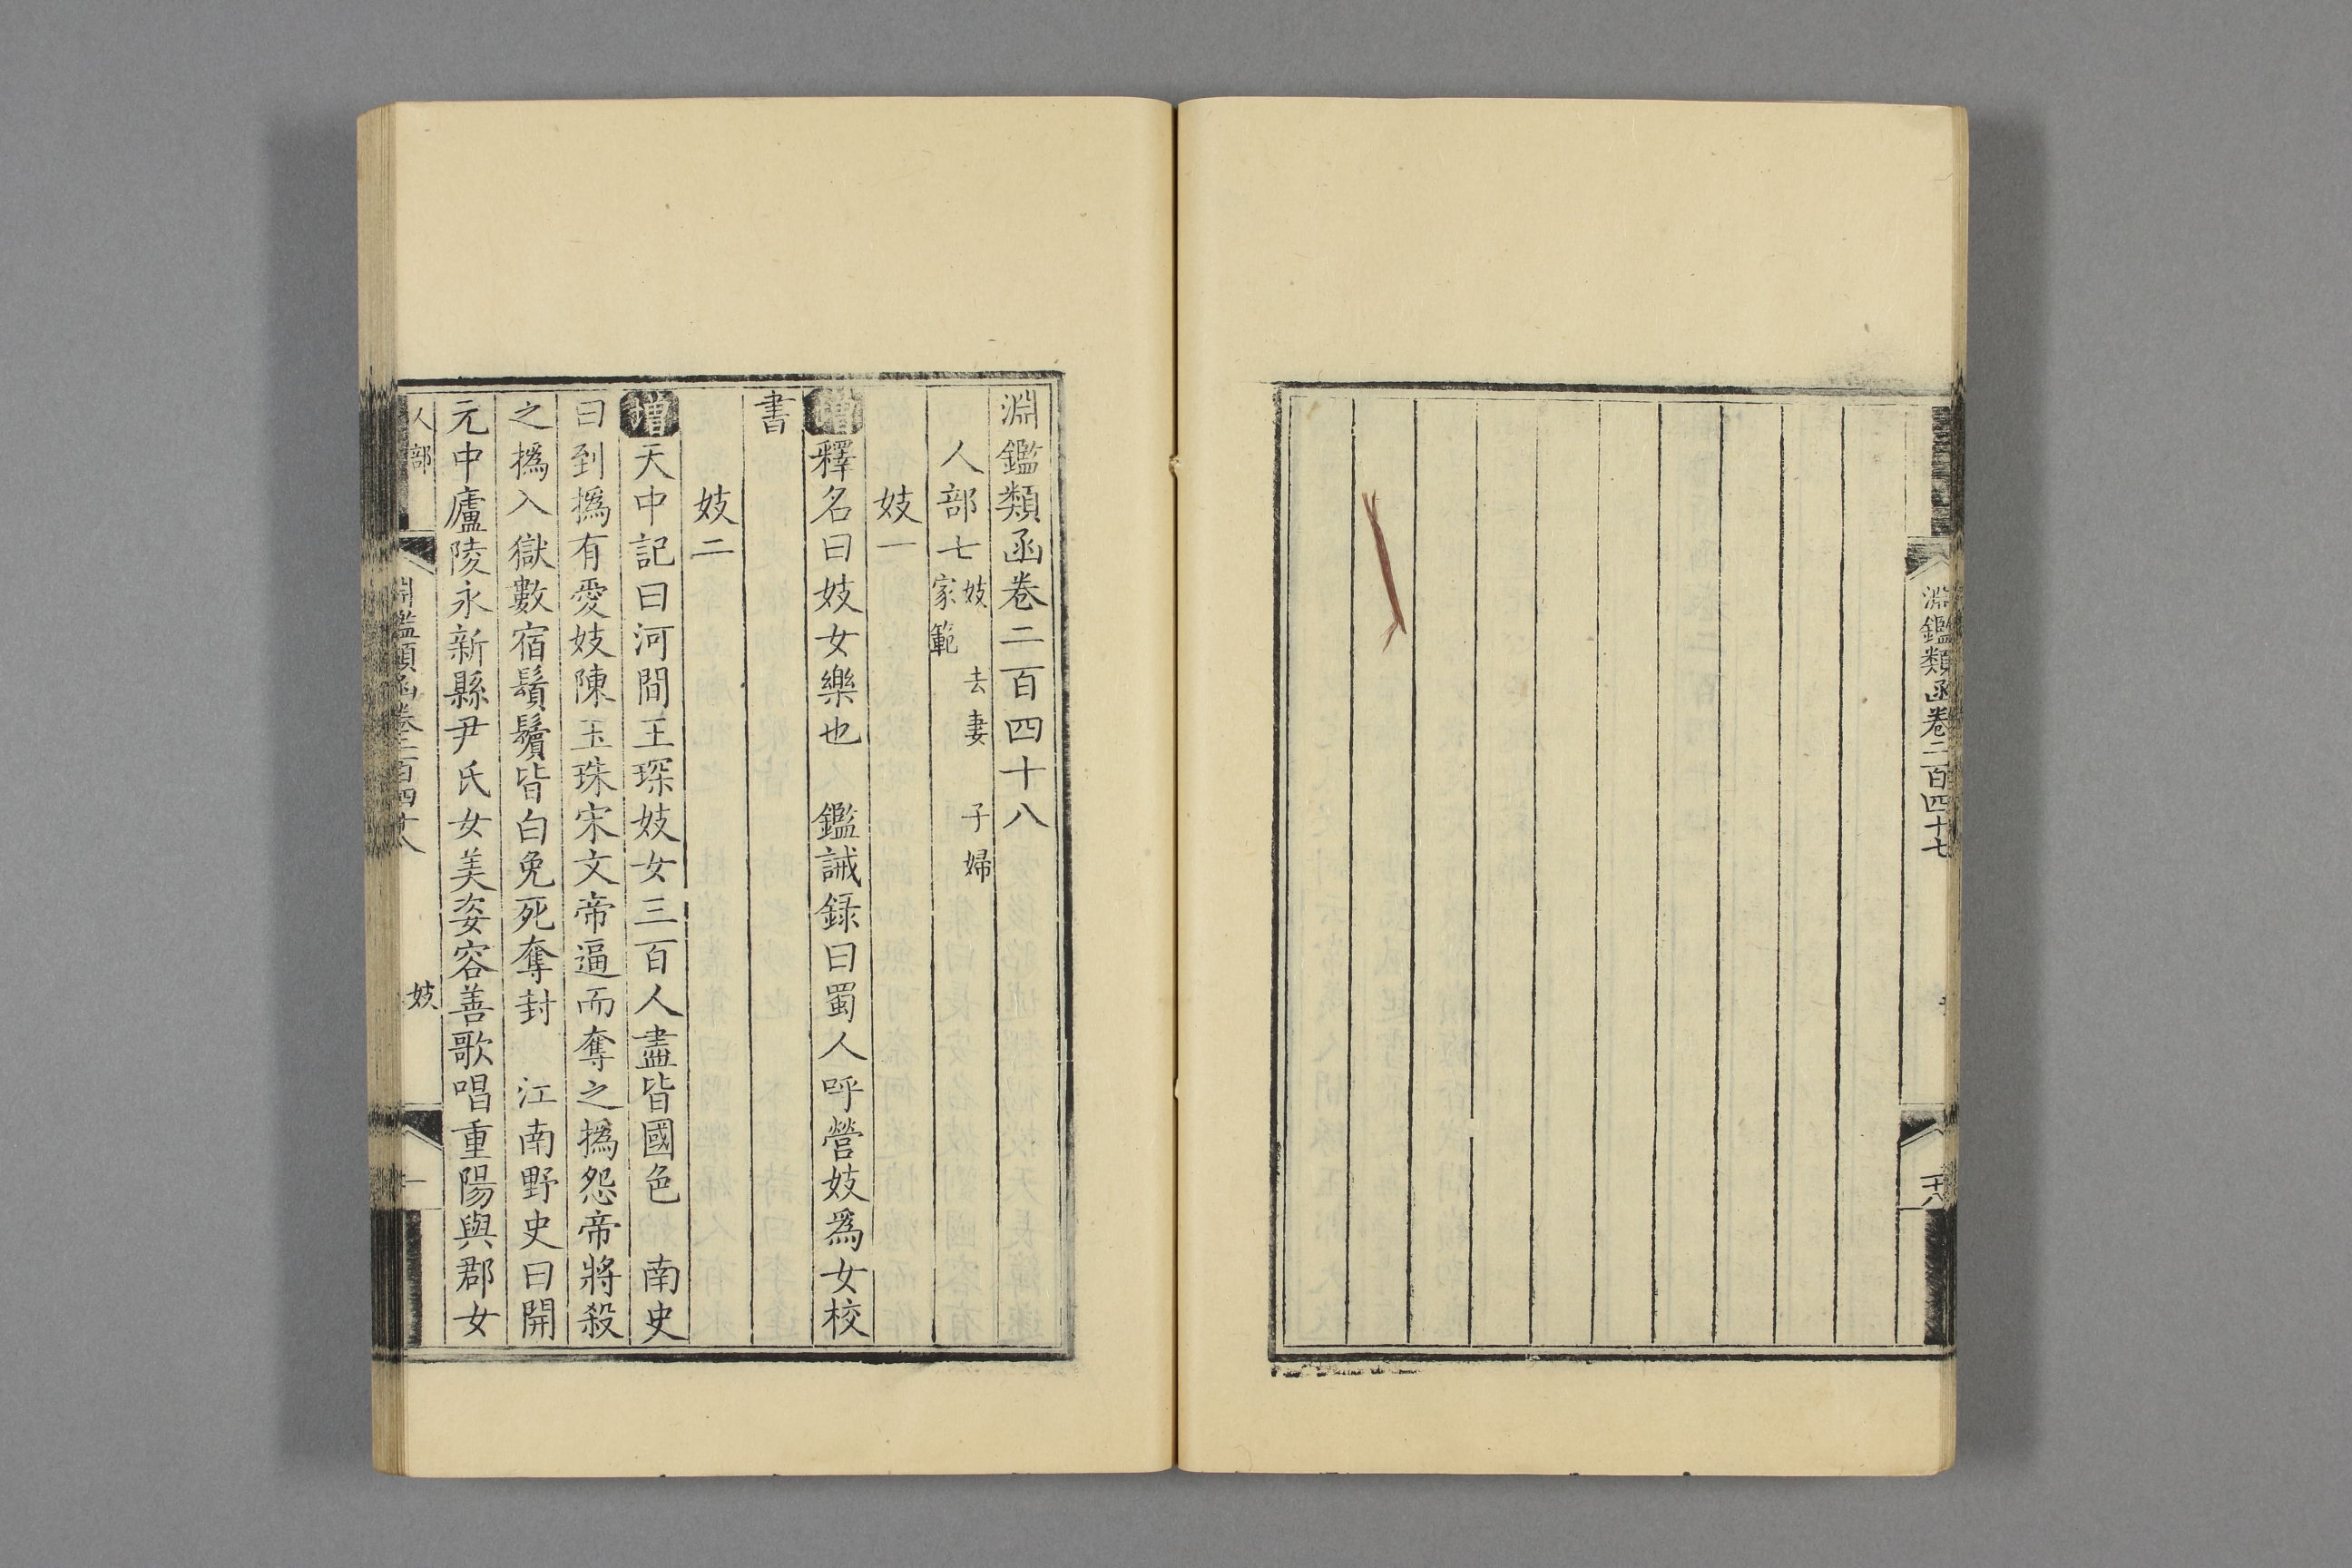 淵鑑類函卷二百四十七
十八
淵鑑類函卷二百四十八
人部七 妓 去妻 子婦
家範
妓一
增 釋名曰妓女樂也 鑑誡録曰蜀人呼營妓爲女校
書
妓二
增 天中記曰河間王琛妓女三百人盡皆國色 南史
曰到撝有愛妓陳玉珠宋文帝逼而奪之撝怨帝將殺
之撝入獄數宿鬚鬢皆白免死奪封 江南野史曰開
元中廬陵永新縣尹氏女美姿容善歌唱重陽與郡女
人部
淵鑑類函卷二百四十八
妓
一